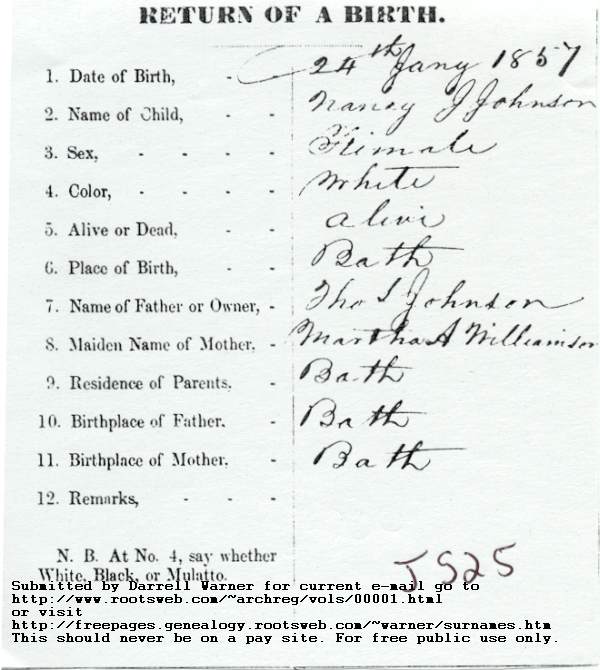 RETURN OF A BIRTH.
1. Date of Birth, - 24th Jany 1857
2. Name of Child, - - Nancy J Johnson
3. Sex, - - - - Feimale
4. Color, - - - - White
5. Alive or Dead, - - alive
6. Place of Birth, - - Bath
7. Name of Father or Owner, - Tho S Johnson
8. Maiden Name of Mother, - Martha A Williamson
9. Residence of Parents, - Bath
10. Birthplace of Father, - Bath
11. Birthplace of Mother, - Bath
12. Remarks, - - -
N. B. At No. 4, say whether
White, Black, or Mulatto.
J S25
Submitted by Darrell Warner for current e-mail go to
http://www.rootsweb.com/~archreg/vols/00001.html
or visit
http://freepages.genealogy.rootsweb.com/~warner/surnames.htm
This should never be on a pay site. For free public use only.